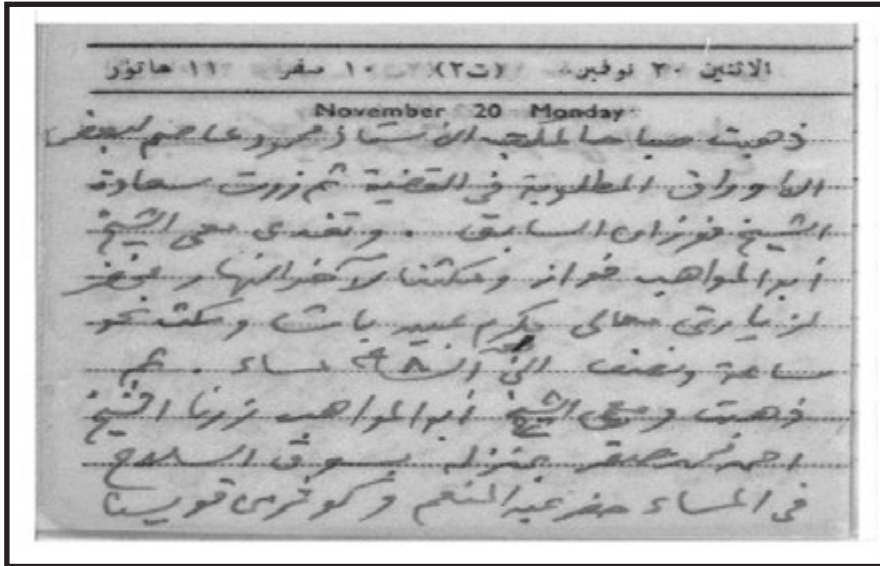 الاثنين ٢٠ نوفمبر (ت٢) ١٠ صفر ١١ هاتور
November 20 Monday
ذهبت صباحا لمكتب الأستاذ محمود عاصم لبعض
الأوراق المطلوبة في القضية ثم زرت سعادة
الشيخ فوزان السابق . وتغدى معي الشيخ
أبو المواهب فواز ومكثنا لآخر النهار فحضر
لزيارتي معالي مكرم عبيد باشا ومكث نحو
ساعة ونصف الى ٨ مساء . ثم
ذهبت ومعي الشيخ أبو المواهب زرنا الشيخ
احمد محمد صقر بمنزله بسوق السلاح
في المساء حضر عبد المنعم